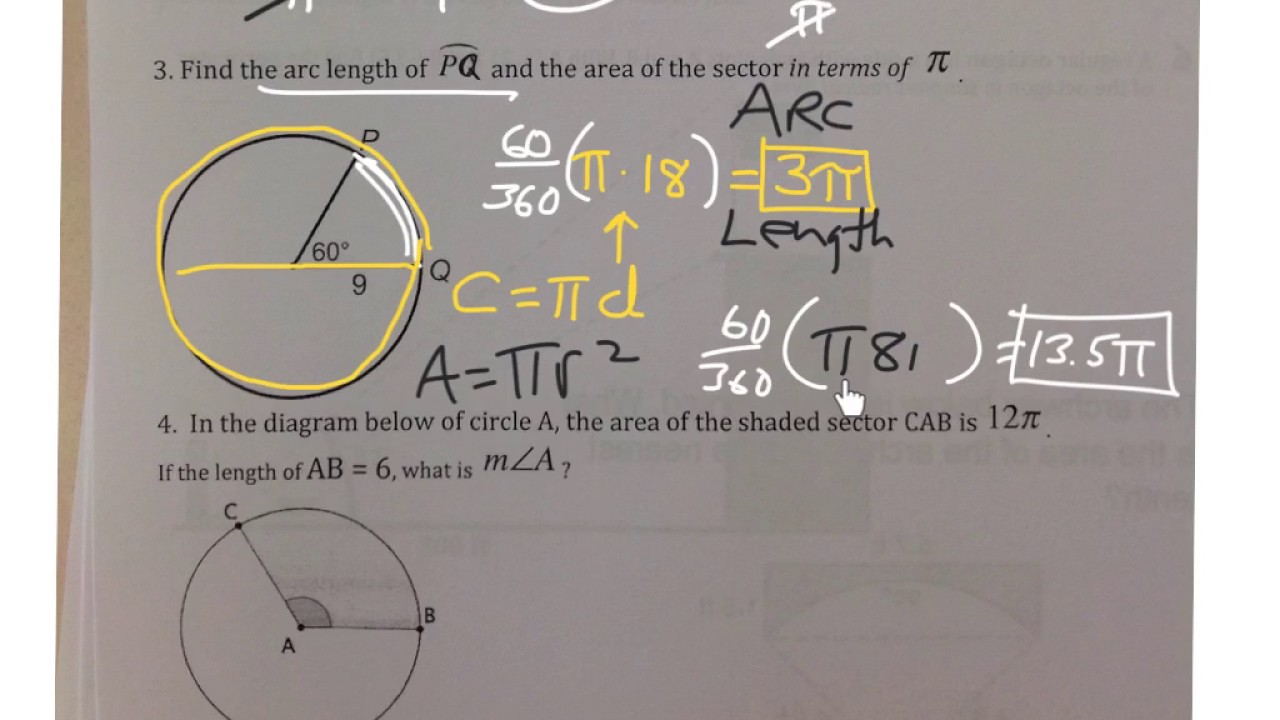 3. Find the arc length of PQ and the area of the sector in terms of π .
P
60°
9
Q
60/360 (π · 18) = 3π
ARC
Length
C = πd
A = πr²
60/360 (π 81) = 13.5π
4. In the diagram below of circle A, the area of the shaded sector CAB is 12π .
If the length of AB = 6, what is m∠A ?
C
B
A